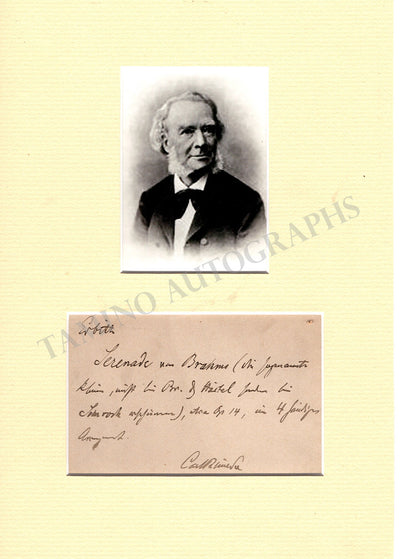 TAMINO AUTOGRAPHS
erbitte
Serenade von Brahms (die sogenannte
kleine, nicht bei Br. & Härtel sondern bei
Simrock erschienen), Op 14, im 4 händigen
Arrangement.
Carl Reinecke